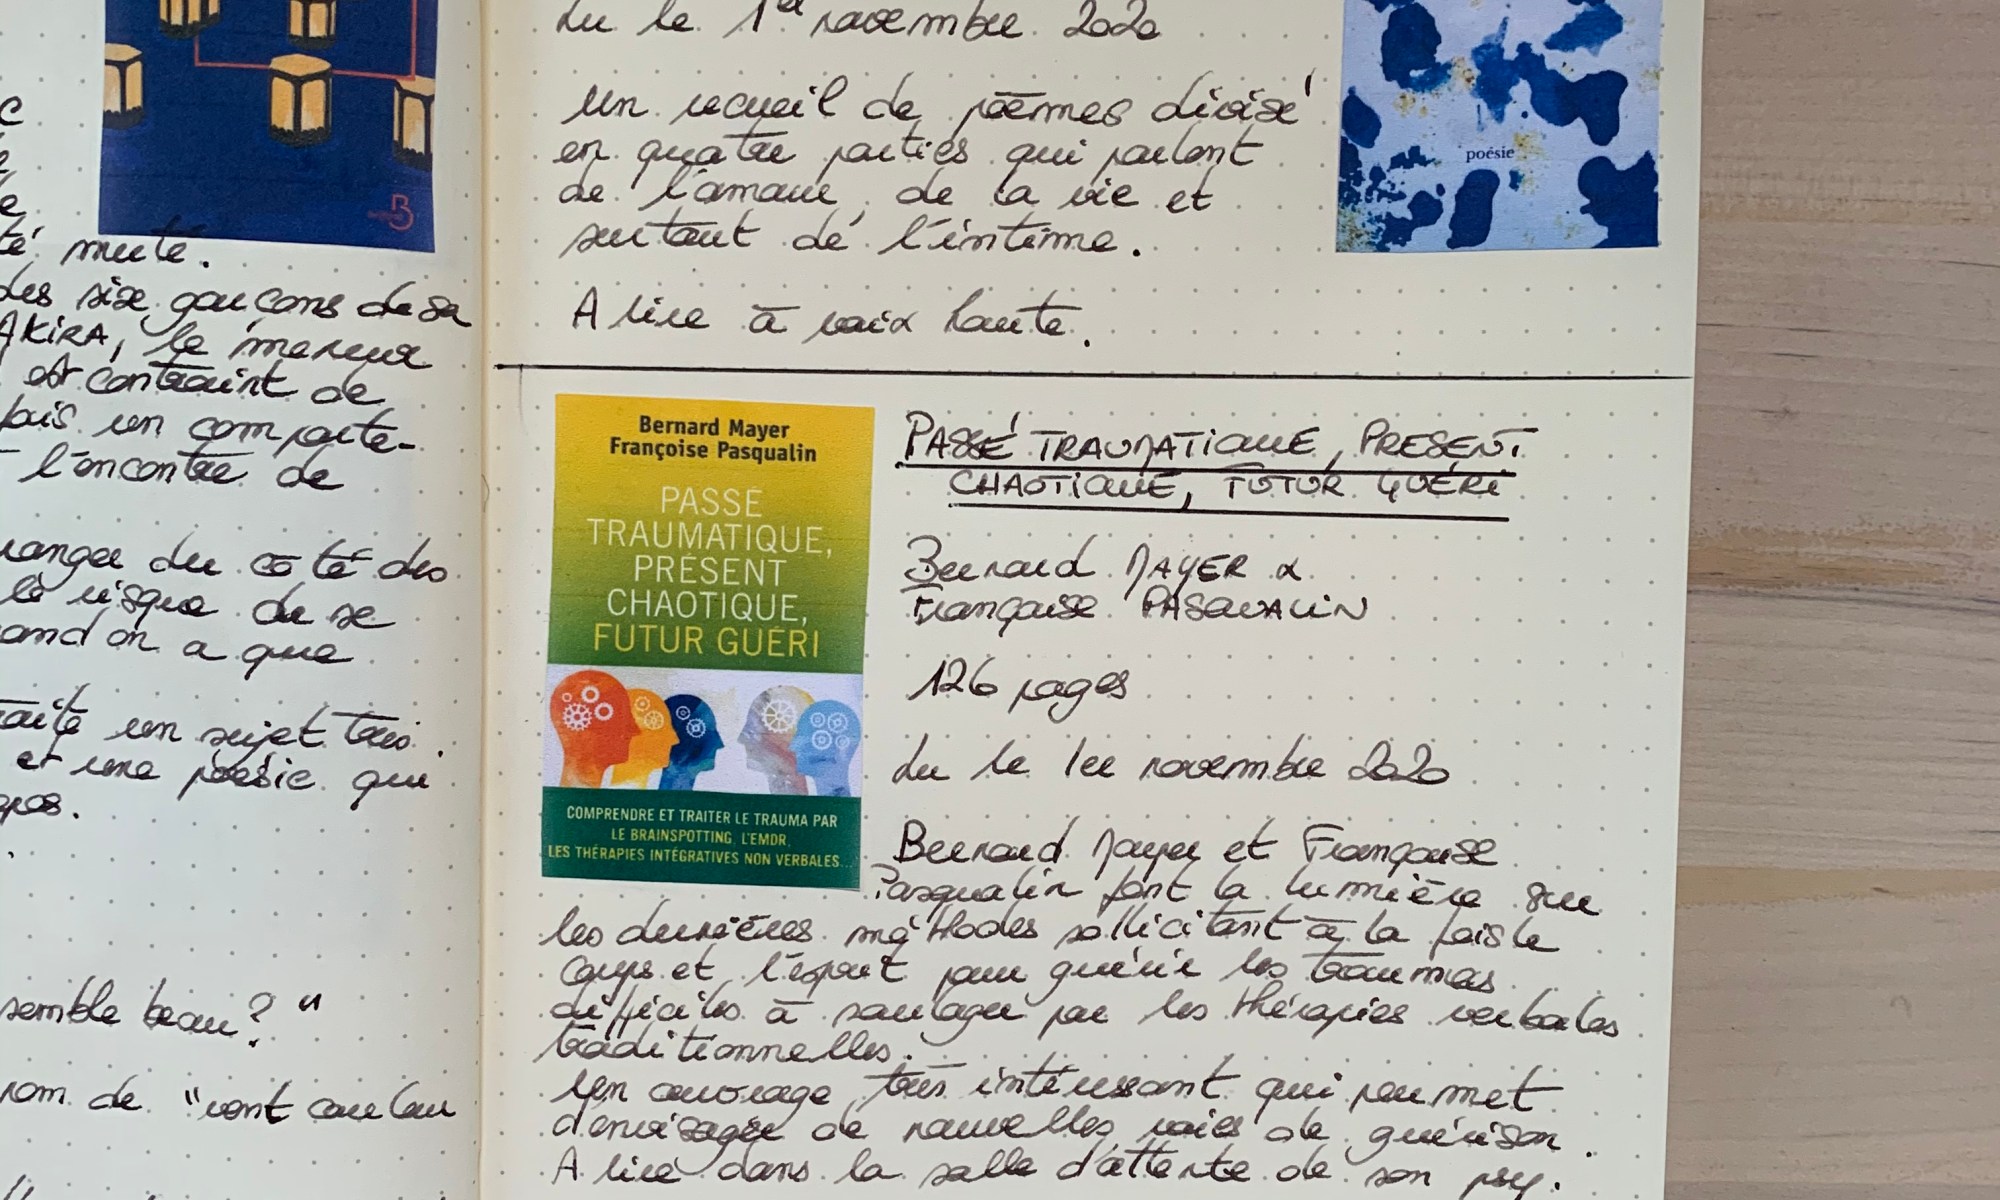 té muté.
des six garçons de sa
AKIRA, le meneur
est contraint de
puis un comparte-
l'encontre de
ranger du côté des
le risque de se
quand on a que
traite un sujet très
et une poésie qui
semble beau? "
nom de "vent couleur
Lu le 1er novembre 2020
un recueil de poèmes divisé
en quatre parties qui parlent
de l'amour, de la vie et
surtout de l'intime.
A lire à voix haute.
poésie
Bernard Mayer
Françoise Pasqualin
PASSÉ
TRAUMATIQUE,
PRÉSENT
CHAOTIQUE,
FUTUR GUÉRI
COMPRENDRE ET TRAITER LE TRAUMA PAR
LE BRAINSPOTTING, L'EMDR,
LES THÉRAPIES INTÉGRATIVES NON VERBALES...
PASSÉ TRAUMATIQUE, PRESENT
CHAOTIQUE, FUTUR GUÉRI
Bernard MAYER &
Françoise PASQUALIN
126 pages
Lu le 1er novembre 2020
Bernard Mayer et Françoise
Pasqualin font la lumière sur
les dernières méthodes sollicitant à la fois le
corps et l'esprit pour guérir les traumas
difficiles à soulager par les thérapies verbales
traditionnelles.
Un ouvrage très intéressant qui permet
d'envisager de nouvelles voies de guérison.
A lire dans la salle d'attente de son psy.